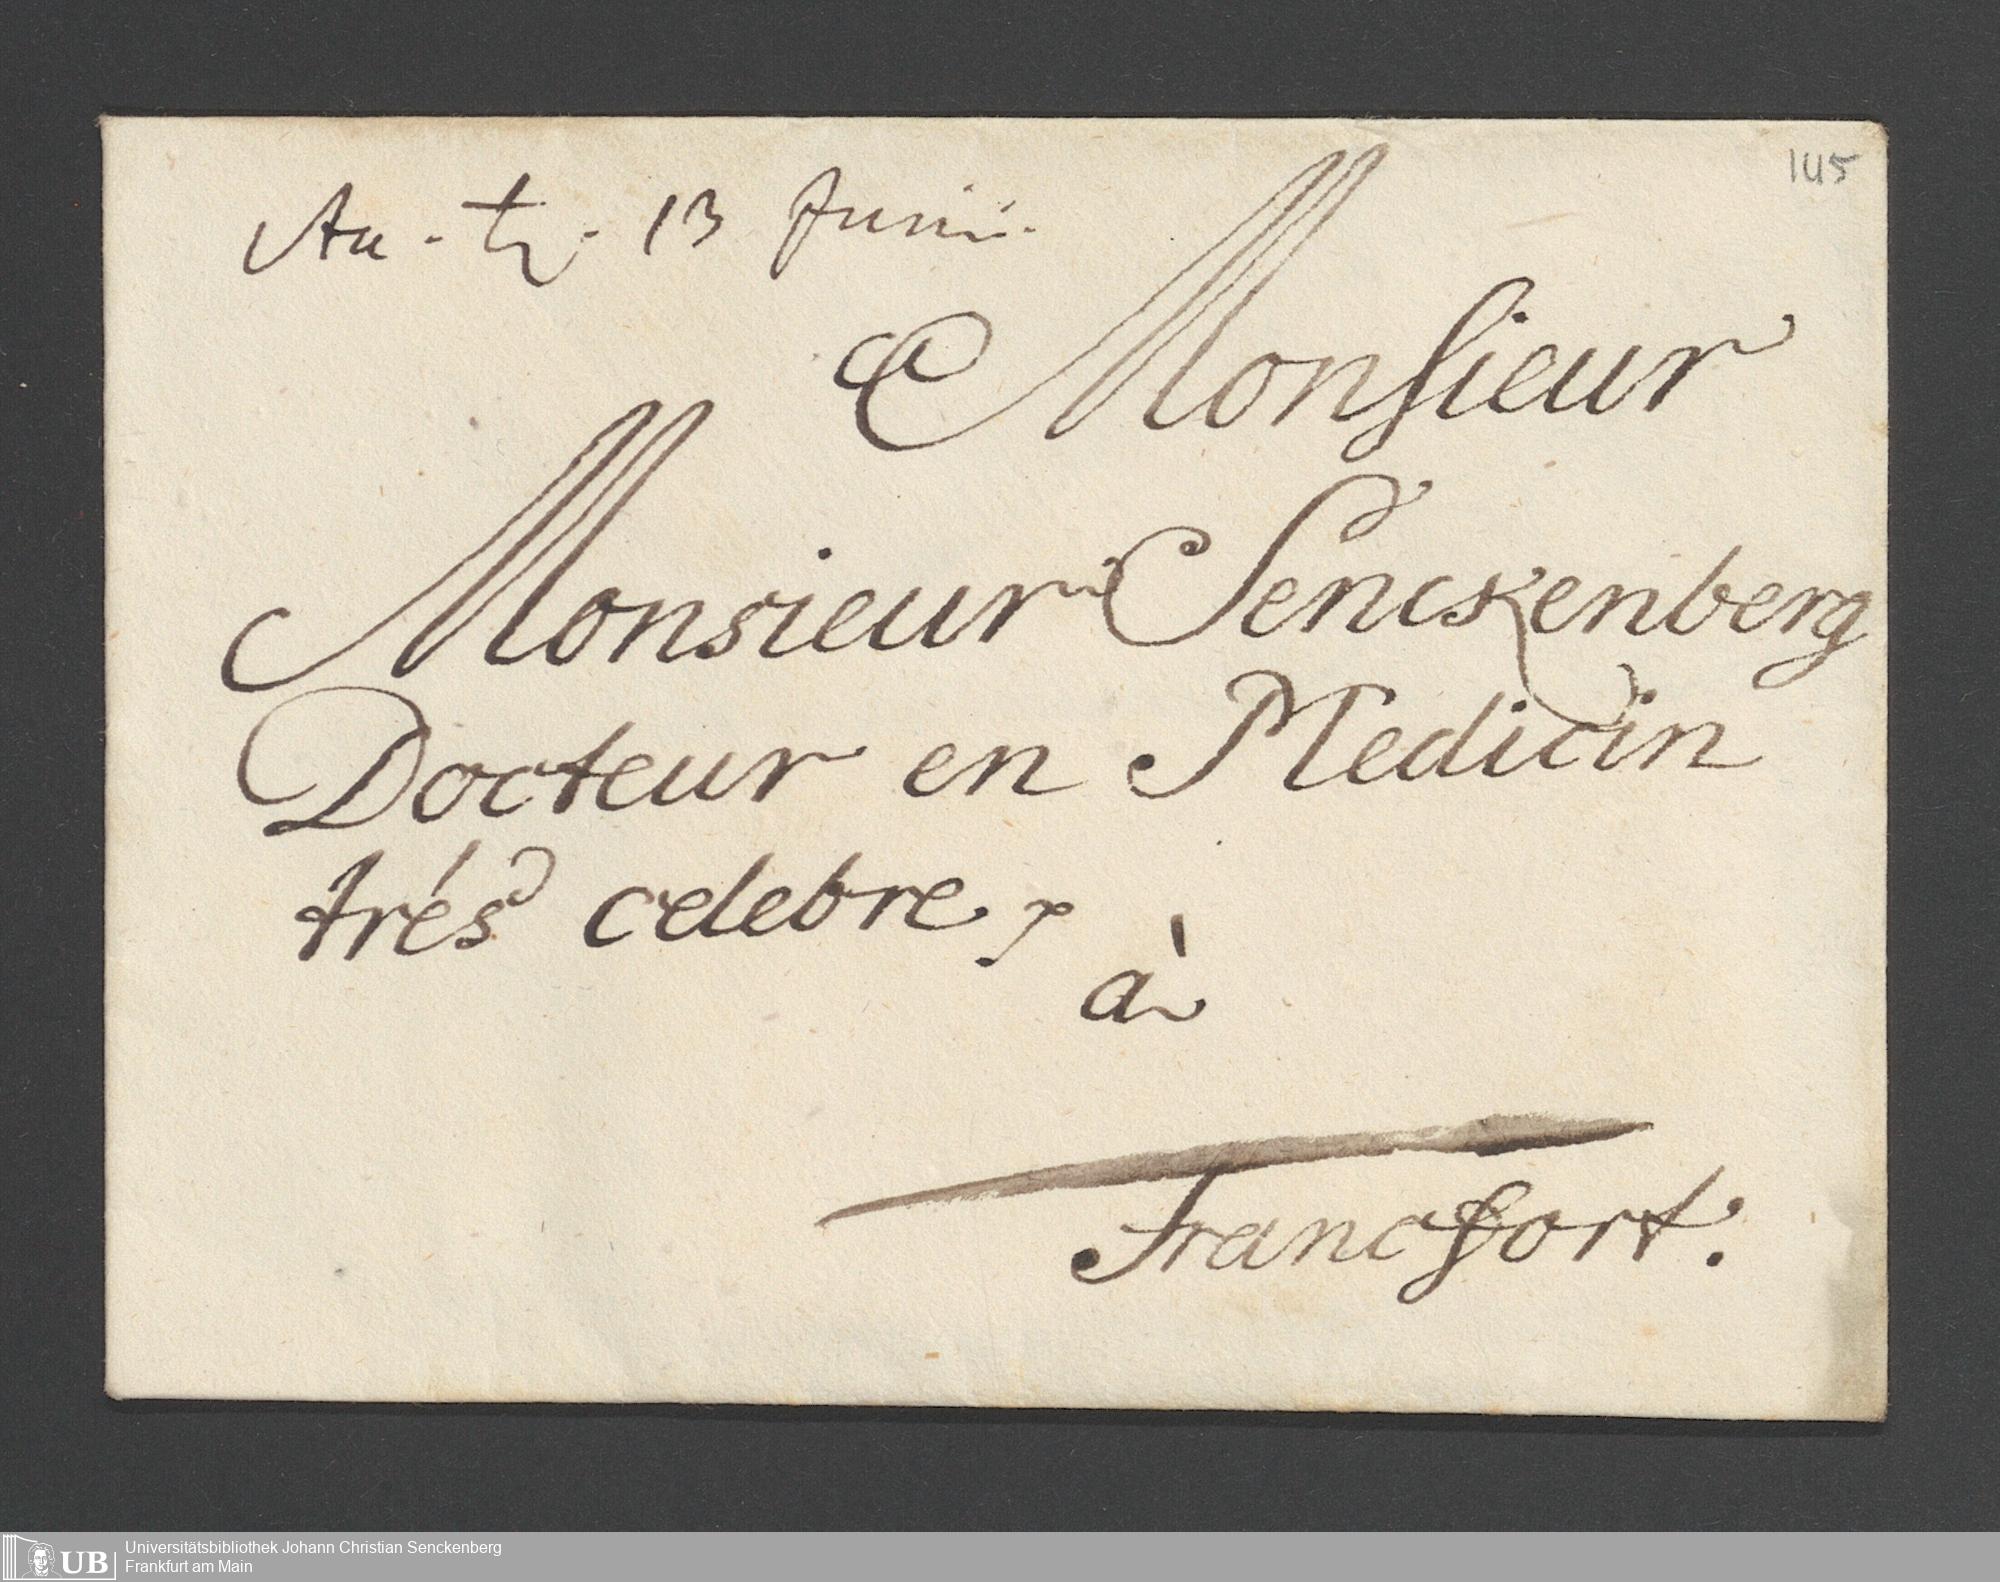 145
13 Junii.
A Monsieur
Monsieur Senckenberg
Docteur en Medicin
trés celebre
à
Francfort.
UB Universitätsbibliothek Johann Christian Senckenberg
Frankfurt am Main